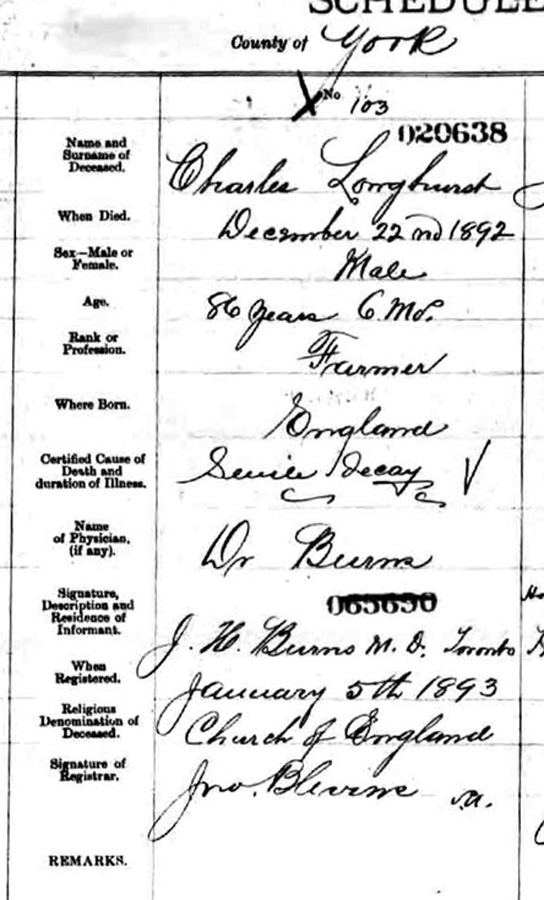 SCHEDULE
County of York
No. 103
020638
Name and Surname of Deceased. Charles Longhurst
When Died. December 22nd 1892
Sex—Male or Female. Male
Age. 86 years 6 Mo.
Rank or Profession. Farmer
Where Born. England
Certified Cause of Death and duration of Illness. Senile Decay
Name of Physician, (if any). Dr Burns
Signature, Description and Residence of Informant. J. H. Burns M. D. Toronto
When Registered. January 5th 1893
Religious Denomination of Deceased. Church of England
Signature of Registrar. Jno. Blevins
REMARKS.